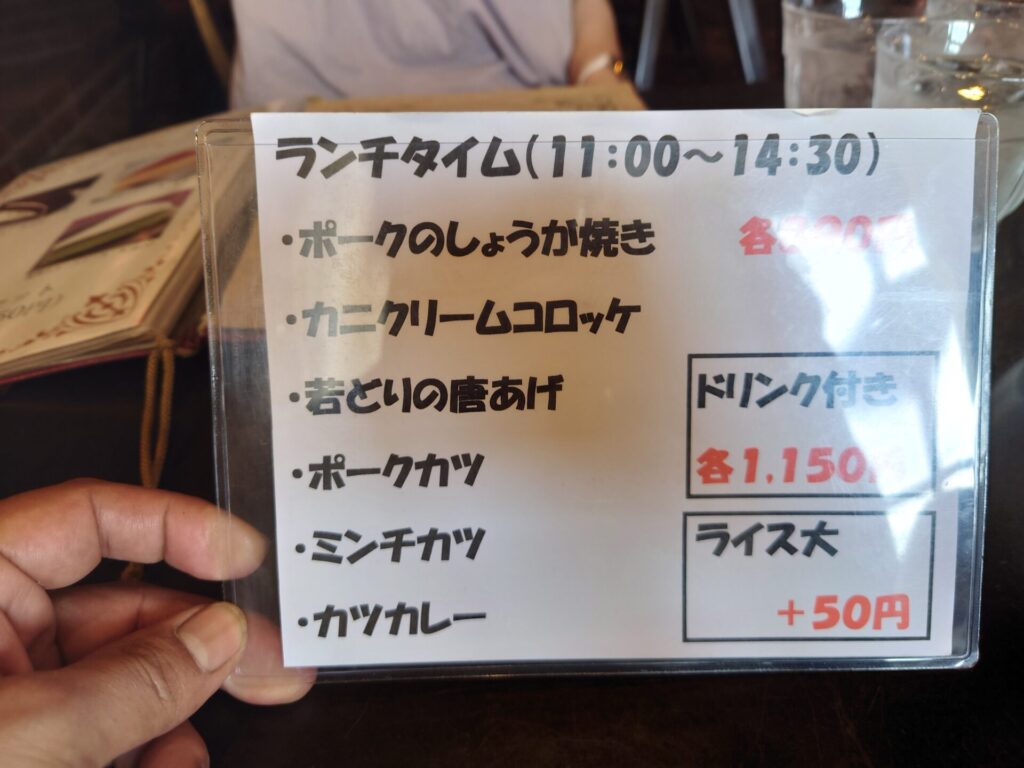 ランチタイム(11:00～14:30)
・ポークのしょうが焼き
・カニクリームコロッケ
・若どりの唐あげ
・ポークカツ
・ミンチカツ
・カツカレー
各
ドリンク付き
各1,150円
ライス大
＋50円